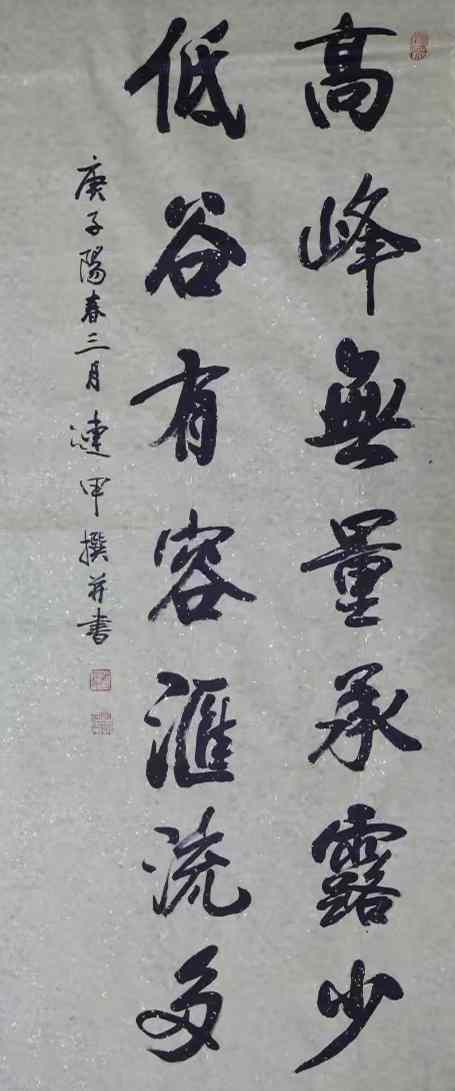 高峰無量承露少
低谷有容滙流多
庚子陽春三月漣甲撰并書